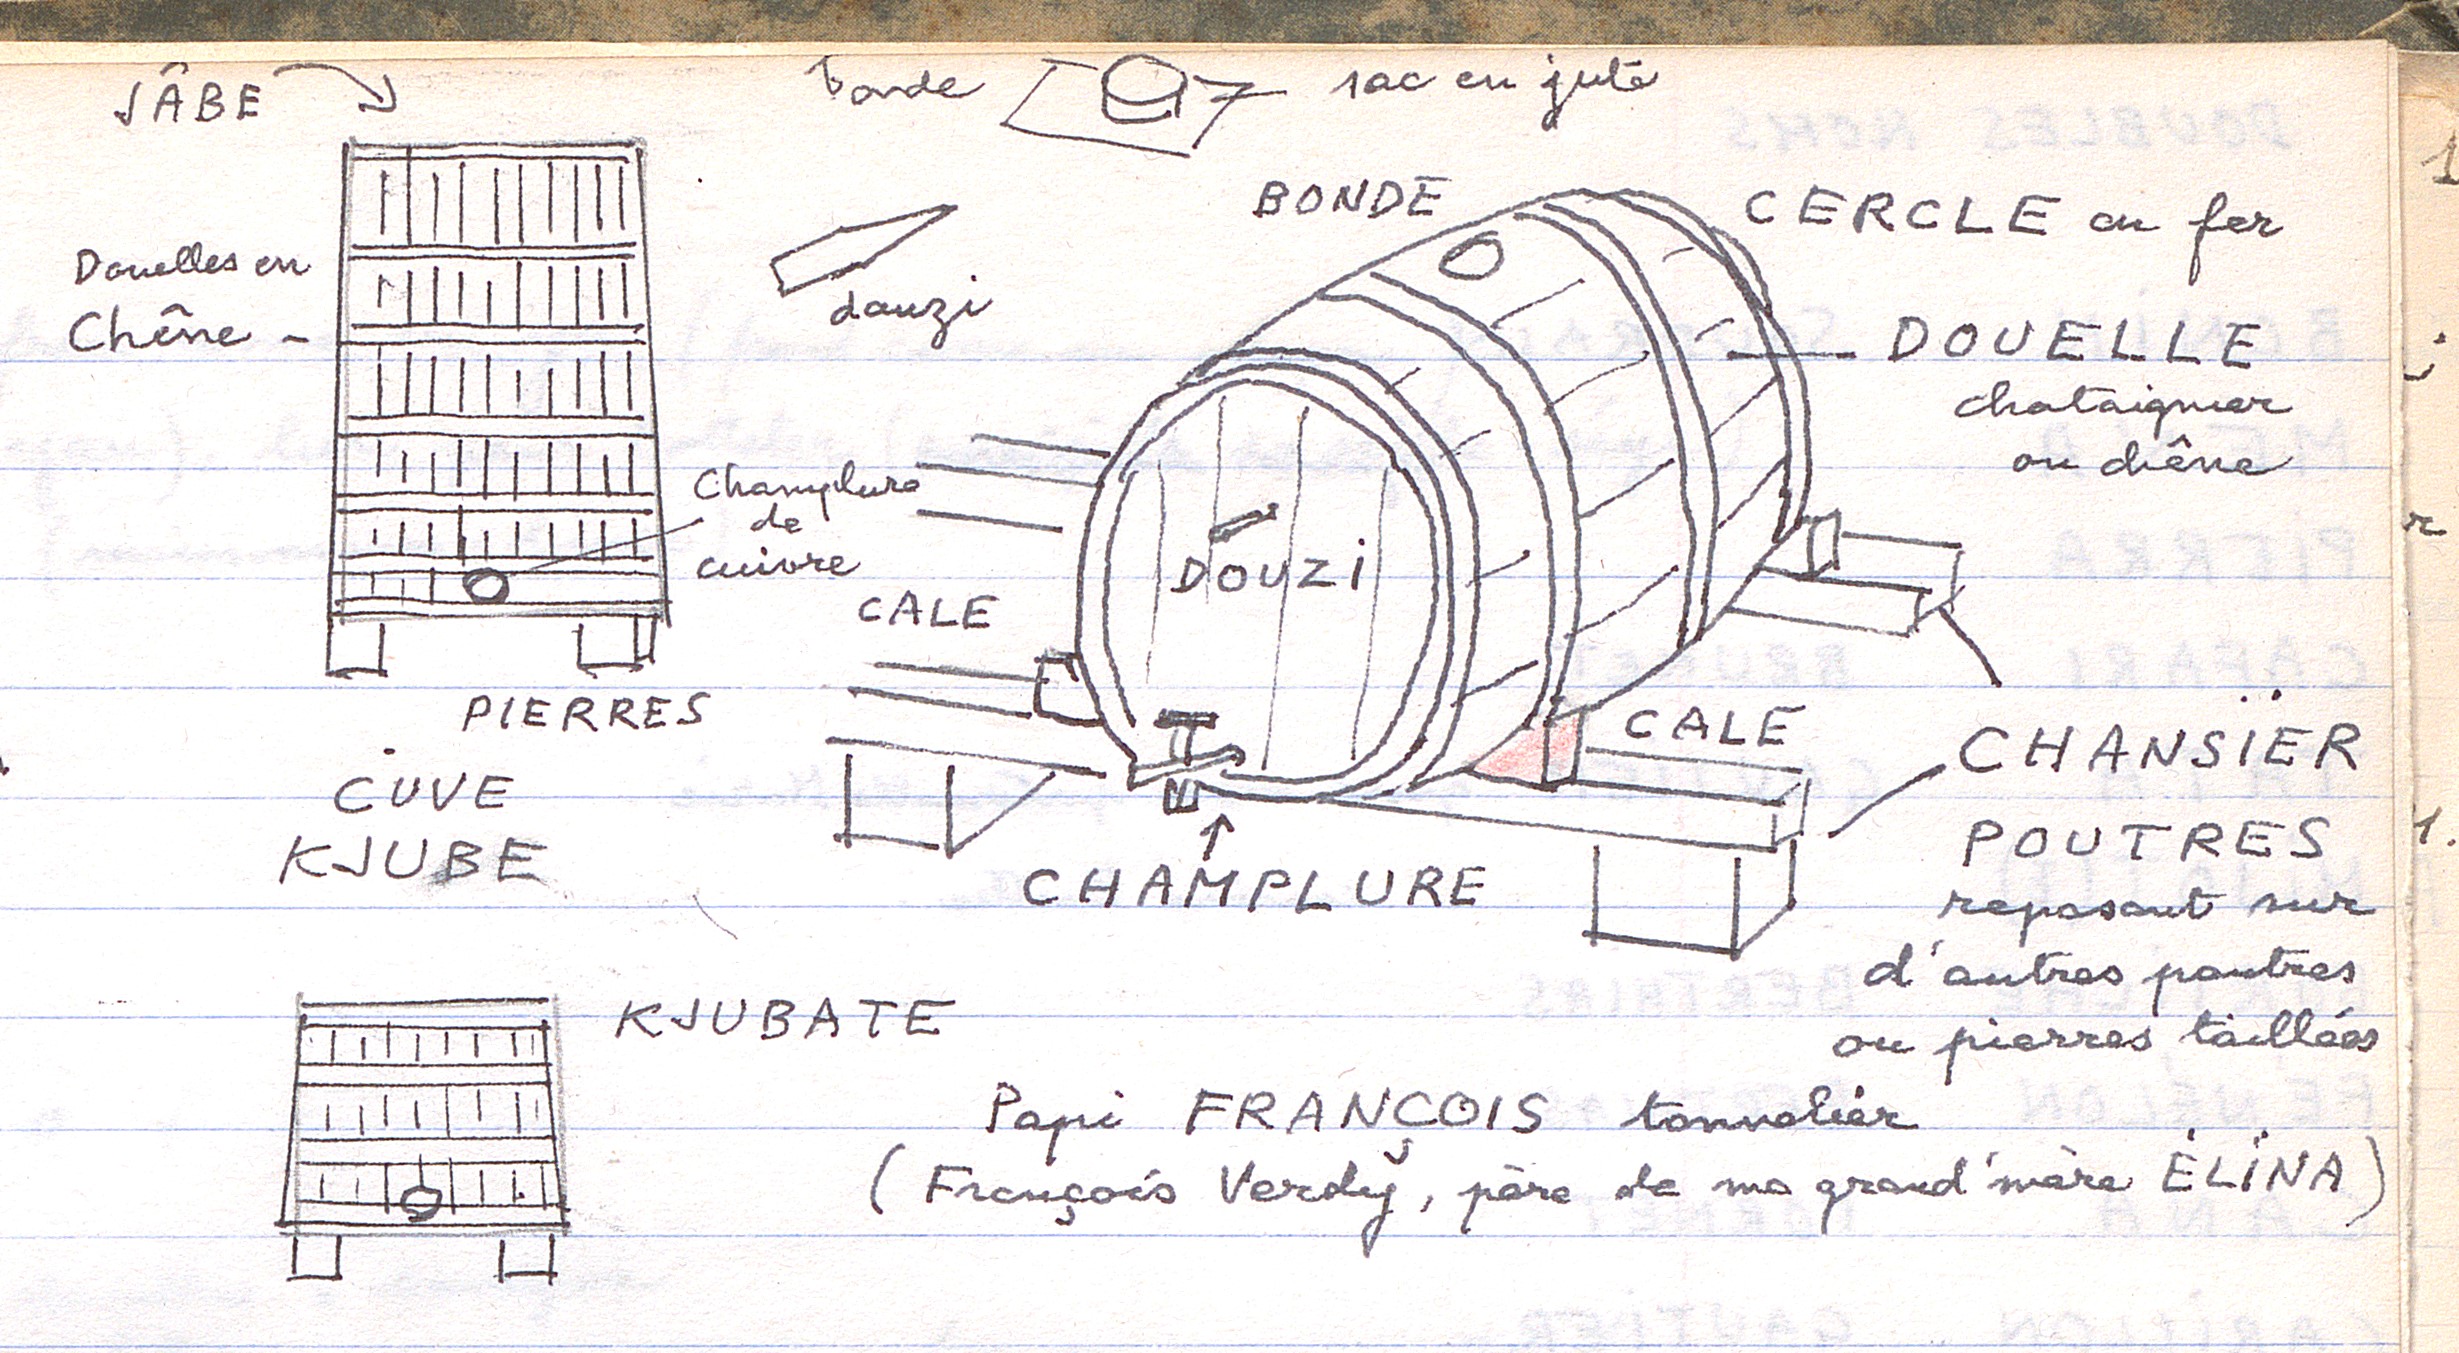 JÂBE
bonde
sac en jute
BONDE
CERCLE en fer
Douelles en
Chêne -
douzi
DOUELLE
chataignier
ou chêne
Champlure
de
cuivre
DOUZI
CALE
PIERRES
CALE
CHANSÏER
CUVE
KJUBE
CHAMPLURE
POUTRES
reposant sur
d'autres poutres
ou pierres taillées
KJUBATE
Papi FRANÇOIS tonnelier
(François Verdy, père de ma grand'mère ÉLINA)